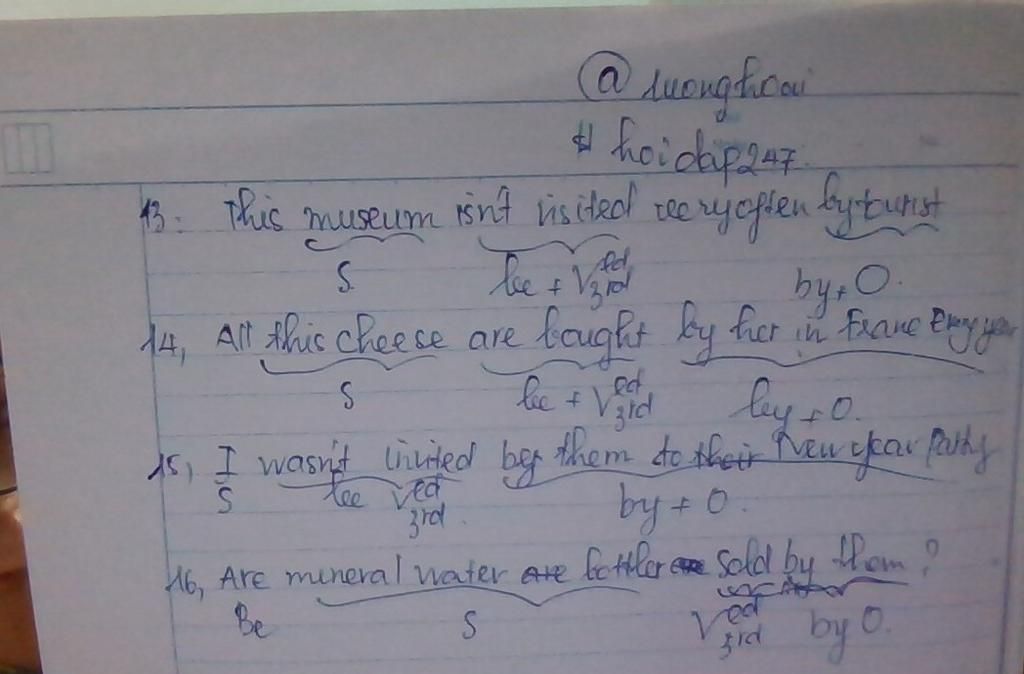 @ luonghoai
# hoidap247.
13: This museum isn't visited very often by turist
S be + V ed 3rd by + O.
14, All this cheese are bought by her in France Every year
S be + V ed 3rd by + O.
15, I wasn't invited by them to their New year Party
S be V ed 3rd. by + O.
16, Are mineral water are bottler are sold by them?
Be S V ed 3rd by O.